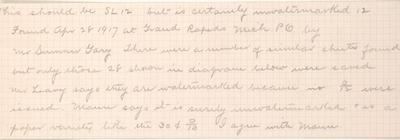 This should be SL12 but is certainly unwatermarked 12
Found Apr 28 1917 at Grand Rapids Mich P.O by
Mr Sumner Gary There were a number of similar sheets found
but only those 28 shown in diagram below were saved
Mr Leavy says they are watermarked because no were
issued. Mann says it is surely unwatermarked & is a
paper variety like the 30¢ 8/10 I agree with Mann.